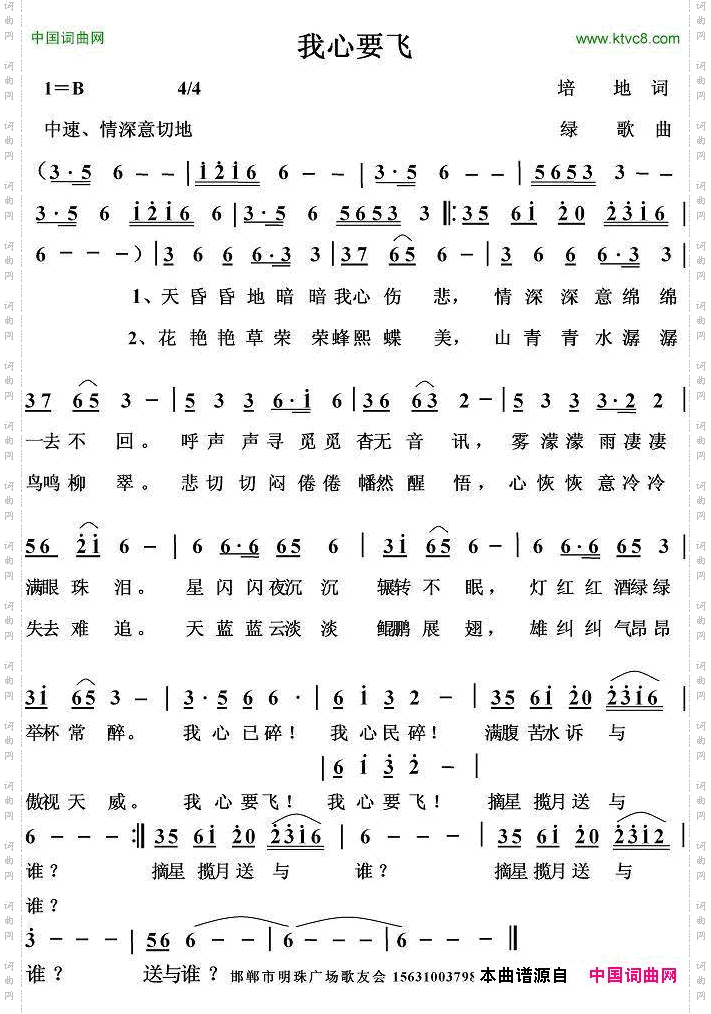 中国词曲网 我心要飞 www.ktvc8.com
1=B 4/4 培 地 词
中速、情深意切地 绿 歌 曲
(3·5 6 – – | i 2 i 6 6 – – | 3·5 6 – – | 5653 3 – –
3·5 6 i2i6 6 | 3·5 6 5653 3 |: 35 6i 20 2316 |
6 – – –) | 3 6 6 6·3 3 | 37 65 6 – | 3 6 6 6·3 3 |
1、天 昏 昏 地 暗 暗 我心 伤 悲， 情 深 深 意 绵 绵
2、花 艳 艳 草 荣 荣 蜂熙 蝶 美， 山 青 青 水 潺 潺
37 65 3 – | 5 3 3 6·i 6 | 36 63 2 – | 5 3 3 3·2 2 |
一去 不 回。 呼 声 声 寻 觅 觅 杳无 音 讯， 雾 濛 濛 雨 凄 凄
鸟鸣 柳 翠。 悲 切 切 闷 倦 倦 幡然 醒 悟， 心 恢 恢 意 冷 冷
56 2i 6 – | 6 6·6 65 6 | 3i 65 6 – | 6 6·6 65 3 |
满眼 珠 泪。 星 闪 闪 夜沉 沉 辗转 不 眠， 灯 红 红 酒绿 绿
失去 难 追。 天 蓝 蓝 云淡 淡 鲲鹏 展 翅， 雄 纠 纠 气昂 昂
3i 65 3 – | 3·5 6 6 – | 6 i 3 2 – | 35 6i 20 2316 |
举杯 常 醉。 我 心 已 碎！ 我 心 民 碎！ 满腹 苦水 诉 与
| 6 i 3 2 – |
傲视 天 威。 我 心 要 飞！ 我 心 要 飞！ 摘星 揽月 送 与
6 – – – :| 35 6i 20 2316 | 6 – – – | 35 6i 20 2312 |
谁？ 摘星 揽月 送 与 谁？ 摘星 揽月 送 与
谁？
3 – – – | 56 6 – – | 6 – – – | 6 – – – ||
谁？ 送与 谁？ 邯郸市明珠广场歌友会 15631003798 本曲谱源自 中国词曲网